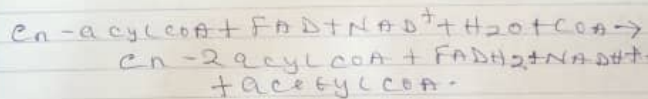 Cn-acylCOA + FAD + NAD⁺ + H2O + COA →
Cn-2 acyl COA + FADH2 + NADH +
+ acetyl COA.